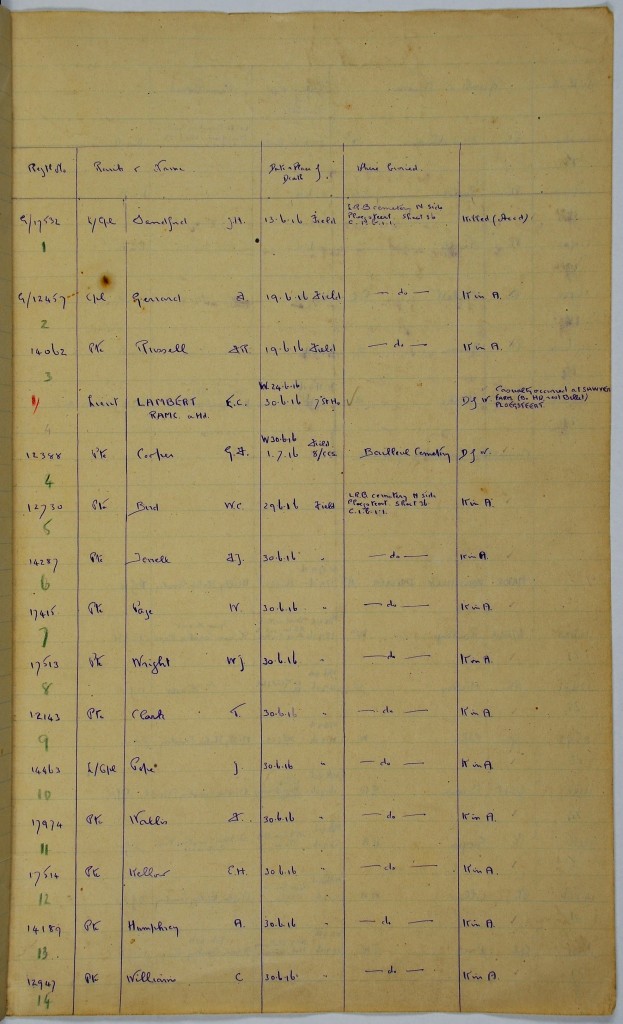 Regtl No Rank & Name Date & Place of Death Where buried.
G/17532 L/Cpl Sandford J.H. 13.6.16 Field L.R.B cemetery N side Ploegsteert Sheet 36 Killed (Accd)
1
G/12457 Cpl Gerrard 19.6.16 Field — do — K in A.
2
14062 Pte Russell 19.6.16 Field — do — K in A.
3
1/ Lieut LAMBERT E.C. W.24.6.16 30.6.16 ✓ D of W Casualty occurred at SAWYER FARM (Bn HQ and Billet) PLOEGSTEERT.
RAMC. a/td.
4
12388 Pte Cooper W 30.6.16 1.7.16 Field 8/CCS Bailleul Cemetery D of W.
4
12730 Pte Bird W.C. 29.6.16 Field L.R.B cemetery N side Ploegsteert Sheet 36 K in A.
5
14287 Pte 30.6.16 " — do — K in A.
6
17415 Pte Page W. 30.6.16 " — do — K in A.
7
17513 Pte Wright W.J. 30.6.16 " — do — K in A.
8
12143 Pte Clark T. 30.6.16 " — do — K in A.
9
14463 L/Cpl Pope J. 30.6.16 " — do — K in A.
10
17974 Pte Wallis 30.6.16 " — do — K in A.
11
17514 Pte Kellow C.H. 30.6.16 " — do — K in A.
12
14189 Pte Humphrey A. 30.6.16 " — do — K in A.
13
12947 Pte William C 30.6.16 " — do — K in A.
14